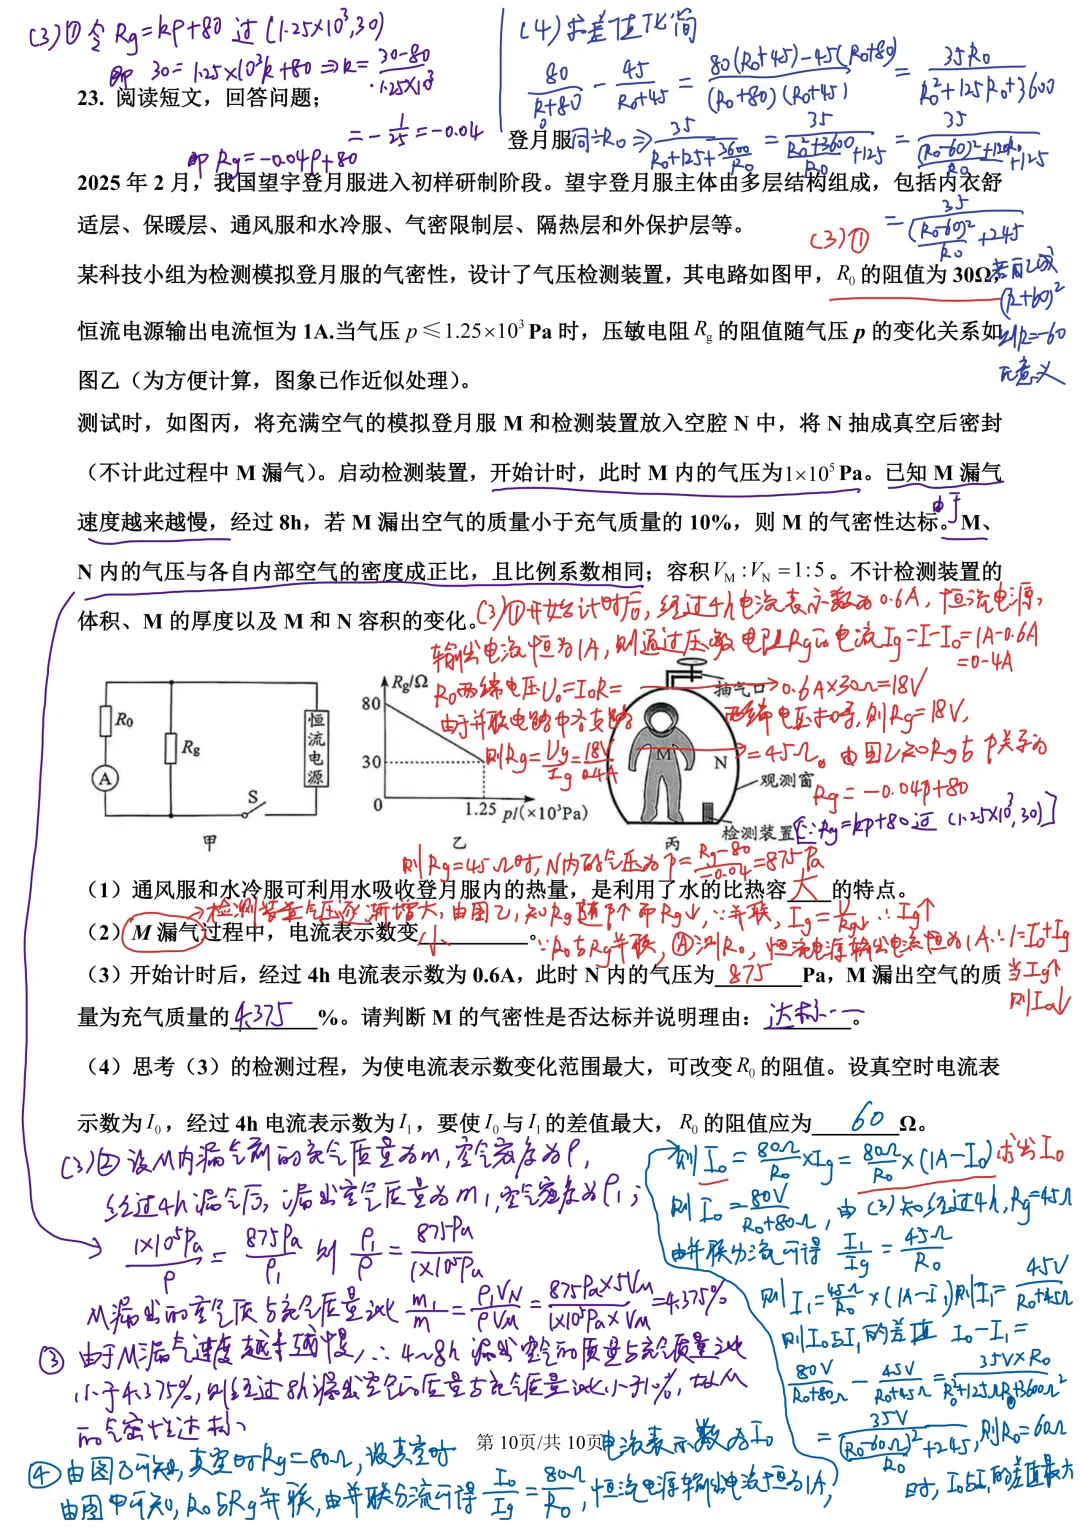 (3)① 令 Rg=kp+80 过 (1.25×10³,30)
即 30=1.25×10³k+80 ⇒ k=(30-80)/(1.25×10³)
=-1/25=-0.04
即 Rg=-0.04p+80
(4) 求差值化简
80/(R₀+80) - 45/(R₀+45) = [80(R₀+45)-45(R₀+80)]/[(R₀+80)(R₀+45)] = 35R₀/(R₀²+125R₀+3600)
同÷R₀ ⇒ 35/(R₀+125+3600/R₀) = 35/((R₀²+3600)/R₀+125) = 35/(((R₀-60)²+120R₀)/R₀+125)
= 35/((R₀-60)²/R₀+245)
23. 阅读短文，回答问题；
登月服
2025 年 2 月，我国望宇登月服进入初样研制阶段。望宇登月服主体由多层结构组成，包括内衣舒
适层、保暖层、通风服和水冷服、气密限制层、隔热层和外保护层等。
(3)①
某科技小组为检测模拟登月服的气密性，设计了气压检测装置，其电路如图甲，R₀ 的阻值为 30Ω，
恒流电源输出电流恒为 1A.当气压 p≤1.25×10³ Pa 时，压敏电阻 Rg 的阻值随气压 p 的变化关系如
图乙（为方便计算，图象已作近似处理）。
(R+60)²
则R=-60
无意义
测试时，如图丙，将充满空气的模拟登月服 M 和检测装置放入空腔 N 中，将 N 抽成真空后密封
（不计此过程中 M 漏气）。启动检测装置，开始计时，此时 M 内的气压为1×10⁵ Pa。已知 M 漏气
速度越来越慢，经过 8h，若 M 漏出空气的质量小于充气质量的 10%，则 M 的气密性达标。M、
由于
N 内的气压与各自内部空气的密度成正比，且比例系数相同；容积V_M :V_N =1:5。不计检测装置的
体积、M 的厚度以及 M 和 N 容积的变化。
(3)①开始计时后，经过4h电流表示数为0.6A，恒流电源
输出电流恒为1A，则通过压敏电阻Rg的电流Ig=I-I₀=1A-0.6A
=0.4A
R₀两端电压U₀=I₀R=0.6A×30Ω=18V
由于并联电路中各支路两端电压相等，则Rg=18V，
则Rg=Ug/Ig=18V/0.4A=45Ω，由图乙知Rg与P关系为
Rg=-0.04p+80
[∵Rg=kp+80过(1.25×10³,30)]
则Rg=45Ω时，N内的气压为P=(Rg-80)/-0.04=875Pa
R₀
Rg
A
S
恒流电源
甲
Rg/Ω
80
30
0
1.25 p/(×10³Pa)
乙
抽气口
M
N
观测窗
检测装置
丙
（1）通风服和水冷服可利用水吸收登月服内的热量，是利用了水的比热容 大 的特点。
检测装置气压逐渐增大，由图乙，知Rg随P↑而Rg↓，∵并联，Ig=U/Rg↓∴Ig↑
（2）M 漏气过程中，电流表示数变 小 。
∵R₀与Rg并联，Ⓐ测R₀，恒流电源输出电流恒为1A∴I=I₀+Ig
当Ig↑
则I₀↓
（3）开始计时后，经过 4h 电流表示数为 0.6A，此时 N 内的气压为 875 Pa，M 漏出空气的质
量为充气质量的 4.375 %。请判断 M 的气密性是否达标并说明理由： 达标… 。
（4）思考（3）的检测过程，为使电流表示数变化范围最大，可改变 R₀ 的阻值。设真空时电流表
示数为 I₀，经过 4h 电流表示数为 I₁，要使 I₀ 与 I₁ 的差值最大，R₀ 的阻值应为 60 Ω。
(3)②设M内漏气前的充气质量为m，空气密度为ρ，
经过4h漏气后，漏出空气质量为m₁，空气密度为ρ₁；
1×10⁵Pa/ρ = 875Pa/ρ₁ 则 ρ₁/ρ = 875Pa/(1×10⁵Pa)
M漏出的空气质与充气质量比 m₁/m = ρ₁V_N/ρV_M = (875Pa×5V_M)/(1×10⁵Pa×V_M) =4.375%
③ 由于M漏气速度越来越慢，∴4~8h漏出空气的质量与充气质量之比
小于4.375%，则经过8h漏出空气的质量与充气质量比小于10%，故M
的气密性达标、
则 I₀=80Ω/R₀×Ig=80Ω/R₀×(1A-I₀) 求出I₀
则 I₀=80V/(R₀+80Ω)，由(3)知经过4h，Rg=45Ω
由并联分流可得 I₁/Ig=45Ω/R₀
则 I₁=45Ω/R₀×(1A-I₁)则I₁=45V/(R₀+45Ω)
则I₀与I₁的差值 I₀-I₁=
80V/(R₀+80Ω) - 45V/(R₀+45Ω) = 35V×R₀/(R₀²+125ΩR₀+3600Ω²)
= 35V/((R₀-60Ω)²/R₀+245)，则R₀=60Ω
时，I₀与I₁的差值最大
第 10页/共 10页
④由图乙可知，真空时Rg=80Ω，设真空时电流表示数为I₀
由图甲可知，R₀与Rg并联，由并联分流可得 I₀/Ig=80Ω/R₀，恒流电源输出电流恒为1A，